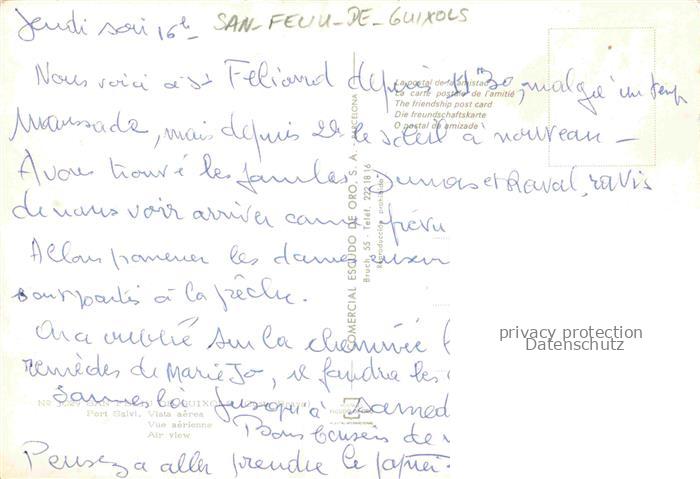 Jeudi soir 16h
SAN-FELIU-DE-GUIXOLS
Nous voici à St depuis malgré un temps
Maussade, mais depuis le soleil a nouveau -
Avons trouvé les familles Dumas et Raval, ravis
de nous voir arriver comme prévu
Allons promener les dames
sont partis à la pêche.
On a oublié sur la cheminée
remèdes de Marie Jo, il faudra les
Sommes là jusqu'à Samed
Bons baisers de
Pensez a aller prendre le
La postal de la amistad
La carte postale de l'amitié
The friendship post card
Die freundschaftskarte
O postal de amizade
COMERCIAL ESCUDO DE ORO, S. A. - BARCELONA
Bruch, 55 - Teléf.
Reproducción prohibida
Port Salvi. Vista aérea
Vue aérienne
Air view
privacy protection
Datenschutz